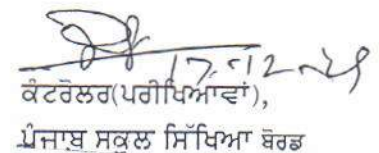 17-12-24
ਕੰਟਰੋਲਰ(ਪਰੀਖਿਆਵਾਂ),
ਪੰਜਾਬ ਸਕੂਲ ਸਿੱਖਿਆ ਬੋਰਡ